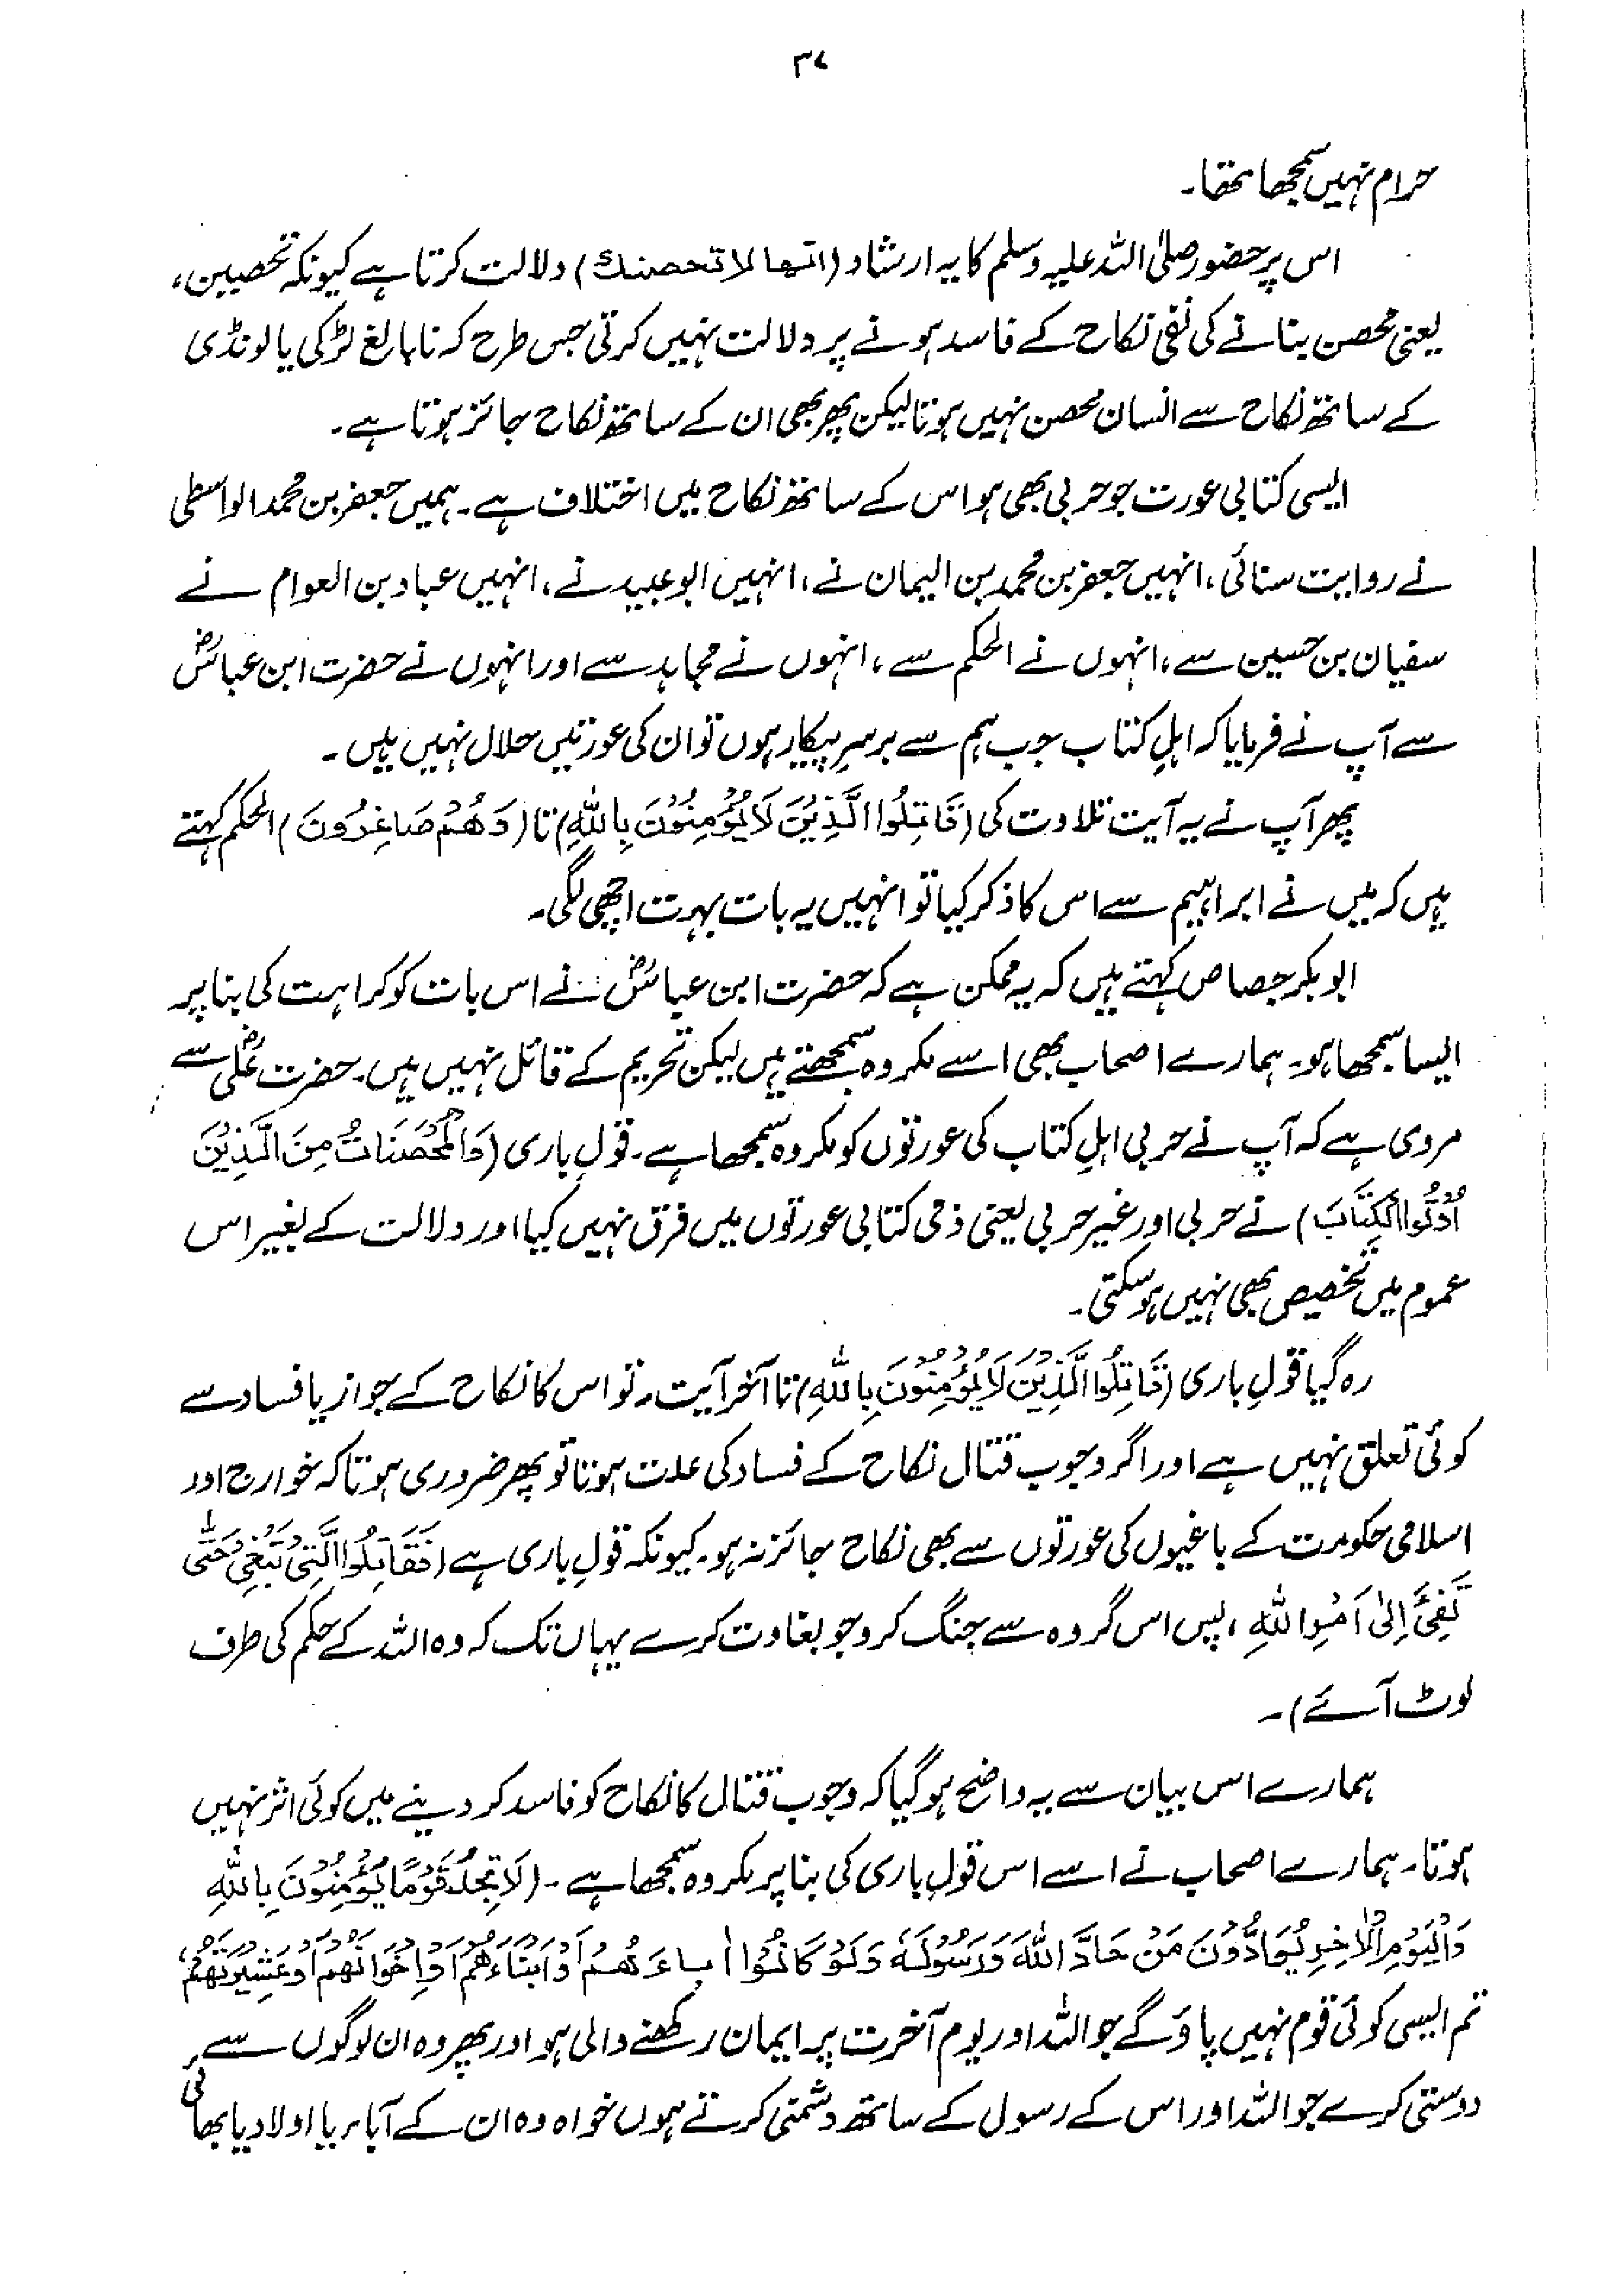 ۳۷
حرام نہیں سمجھا تھا۔
اس پر حضور صلی اللہ علیہ وسلم کا یہ ارشاد (انھا لا تحصنک) دلالت کرتا ہے کیونکہ تحصین،
یعنی محصن بنانے کی نفی نکاح کے فاسد ہونے پر دلالت نہیں کرتی جس طرح کہ نابالغ لڑکی یا لونڈی
کے ساتھ نکاح سے انسان محصن نہیں ہوتا لیکن پھر بھی ان کے ساتھ نکاح جائز ہوتا ہے۔
ایسی کتابی عورت جو حربی بھی ہو اس کے ساتھ نکاح میں اختلاف ہے۔ ہمیں جعفر بن محمد الواسطی
نے روایت سنائی، انہیں جعفر بن محمد بن الیمان نے، انہیں ابو عبید نے، انہیں عباد بن العوام نے
سفیان بن حسین سے، انہوں نے الحکم سے، انہوں نے مجاہد سے اور انہوں نے حضرت ابن عباسؓ
سے آپ نے فرمایا کہ اہلِ کتاب جب ہم سے برسرِ پیکار ہوں تو ان کی عورتیں حلال نہیں ہیں۔
پھر آپ نے یہ آیت تلاوت کی (قَاتِلُوا الَّذِیْنَ لَا یُؤْمِنُوْنَ بِاللّٰہِ) تا (وَھُمْ صَاغِرُوْنَ) الحکم کہتے
ہیں کہ میں نے ابراہیم سے اس کا ذکر کیا تو انہیں یہ بات بہت اچھی لگی۔
ابوبکر جصاص کہتے ہیں کہ یہ ممکن ہے کہ حضرت ابن عباسؓ نے اس بات کو کراہت کی بنا پر
ایسا سمجھا ہو۔ ہمارے اصحاب بھی اسے مکروہ سمجھتے ہیں لیکن تحریم کے قائل نہیں ہیں۔ حضرت علیؓ سے
مروی ہے کہ آپ نے حربی اہلِ کتاب کی عورتوں کو مکروہ سمجھا ہے۔ قولِ باری (وَالْمُحْصَنَاتُ مِنَ الَّذِیْنَ
اُوْتُوا الْکِتَابَ) نے حربی اور غیر حربی یعنی ذمی کتابی عورتوں میں فرق نہیں کیا اور دلالت کے بغیر اس
عموم میں تخصیص بھی نہیں ہو سکتی۔
رہ گیا قولِ باری (قَاتِلُوا الَّذِیْنَ لَا یُؤْمِنُوْنَ بِاللّٰہِ) تا آخر آیت۔ تو اس کا نکاح کے جواز یا فساد سے
کوئی تعلق نہیں ہے اور اگر وجوب قتال نکاح کے فساد کی علت ہوتا تو پھر ضروری ہوتا کہ خوارج اور
اسلامی حکومت کے باغیوں کی عورتوں سے بھی نکاح جائز نہ ہو۔ کیونکہ قولِ باری ہے (فَقَاتِلُوا الَّتِیْ تَبْغِیْ حَتّٰی
تَفِیْٓءَ اِلٰی اَمْرِ اللّٰہِ، پس اس گروہ سے جنگ کرو جو بغاوت کرے یہاں تک کہ وہ اللہ کے حکم کی طرف
لوٹ آئے)۔
ہمارے اس بیان سے یہ واضح ہو گیا کہ وجوب قتال کا نکاح کو فاسد کر دینے میں کوئی اثر نہیں
ہوتا۔ ہمارے اصحاب نے اسے اس قولِ باری کی بنا پر مکروہ سمجھا ہے۔ (لَا تَجِدُ قَوْمًا یُؤْمِنُوْنَ بِاللّٰہِ
وَالْیَوْمِ الْاٰخِرِ یُوَادُّوْنَ مَنْ حَادَّ اللّٰہَ وَرَسُوْلَہٗ وَلَوْ کَانُوْا اٰبَاءَ ھُمْ اَوْ اَبْنَاءَھُمْ اَوْ اِخْوَانَھُمْ اَوْ عَشِیْرَتَھُمْ،
تم ایسی کوئی قوم نہیں پاؤ گے جو اللہ اور یوم آخرت پر ایمان رکھنے والی ہو اور پھر وہ ان لوگوں سے
دوستی کرے جو اللہ اور اس کے رسول کے ساتھ دشمنی کرتے ہوں خواہ وہ ان کے آباء یا اولاد یا بھائی